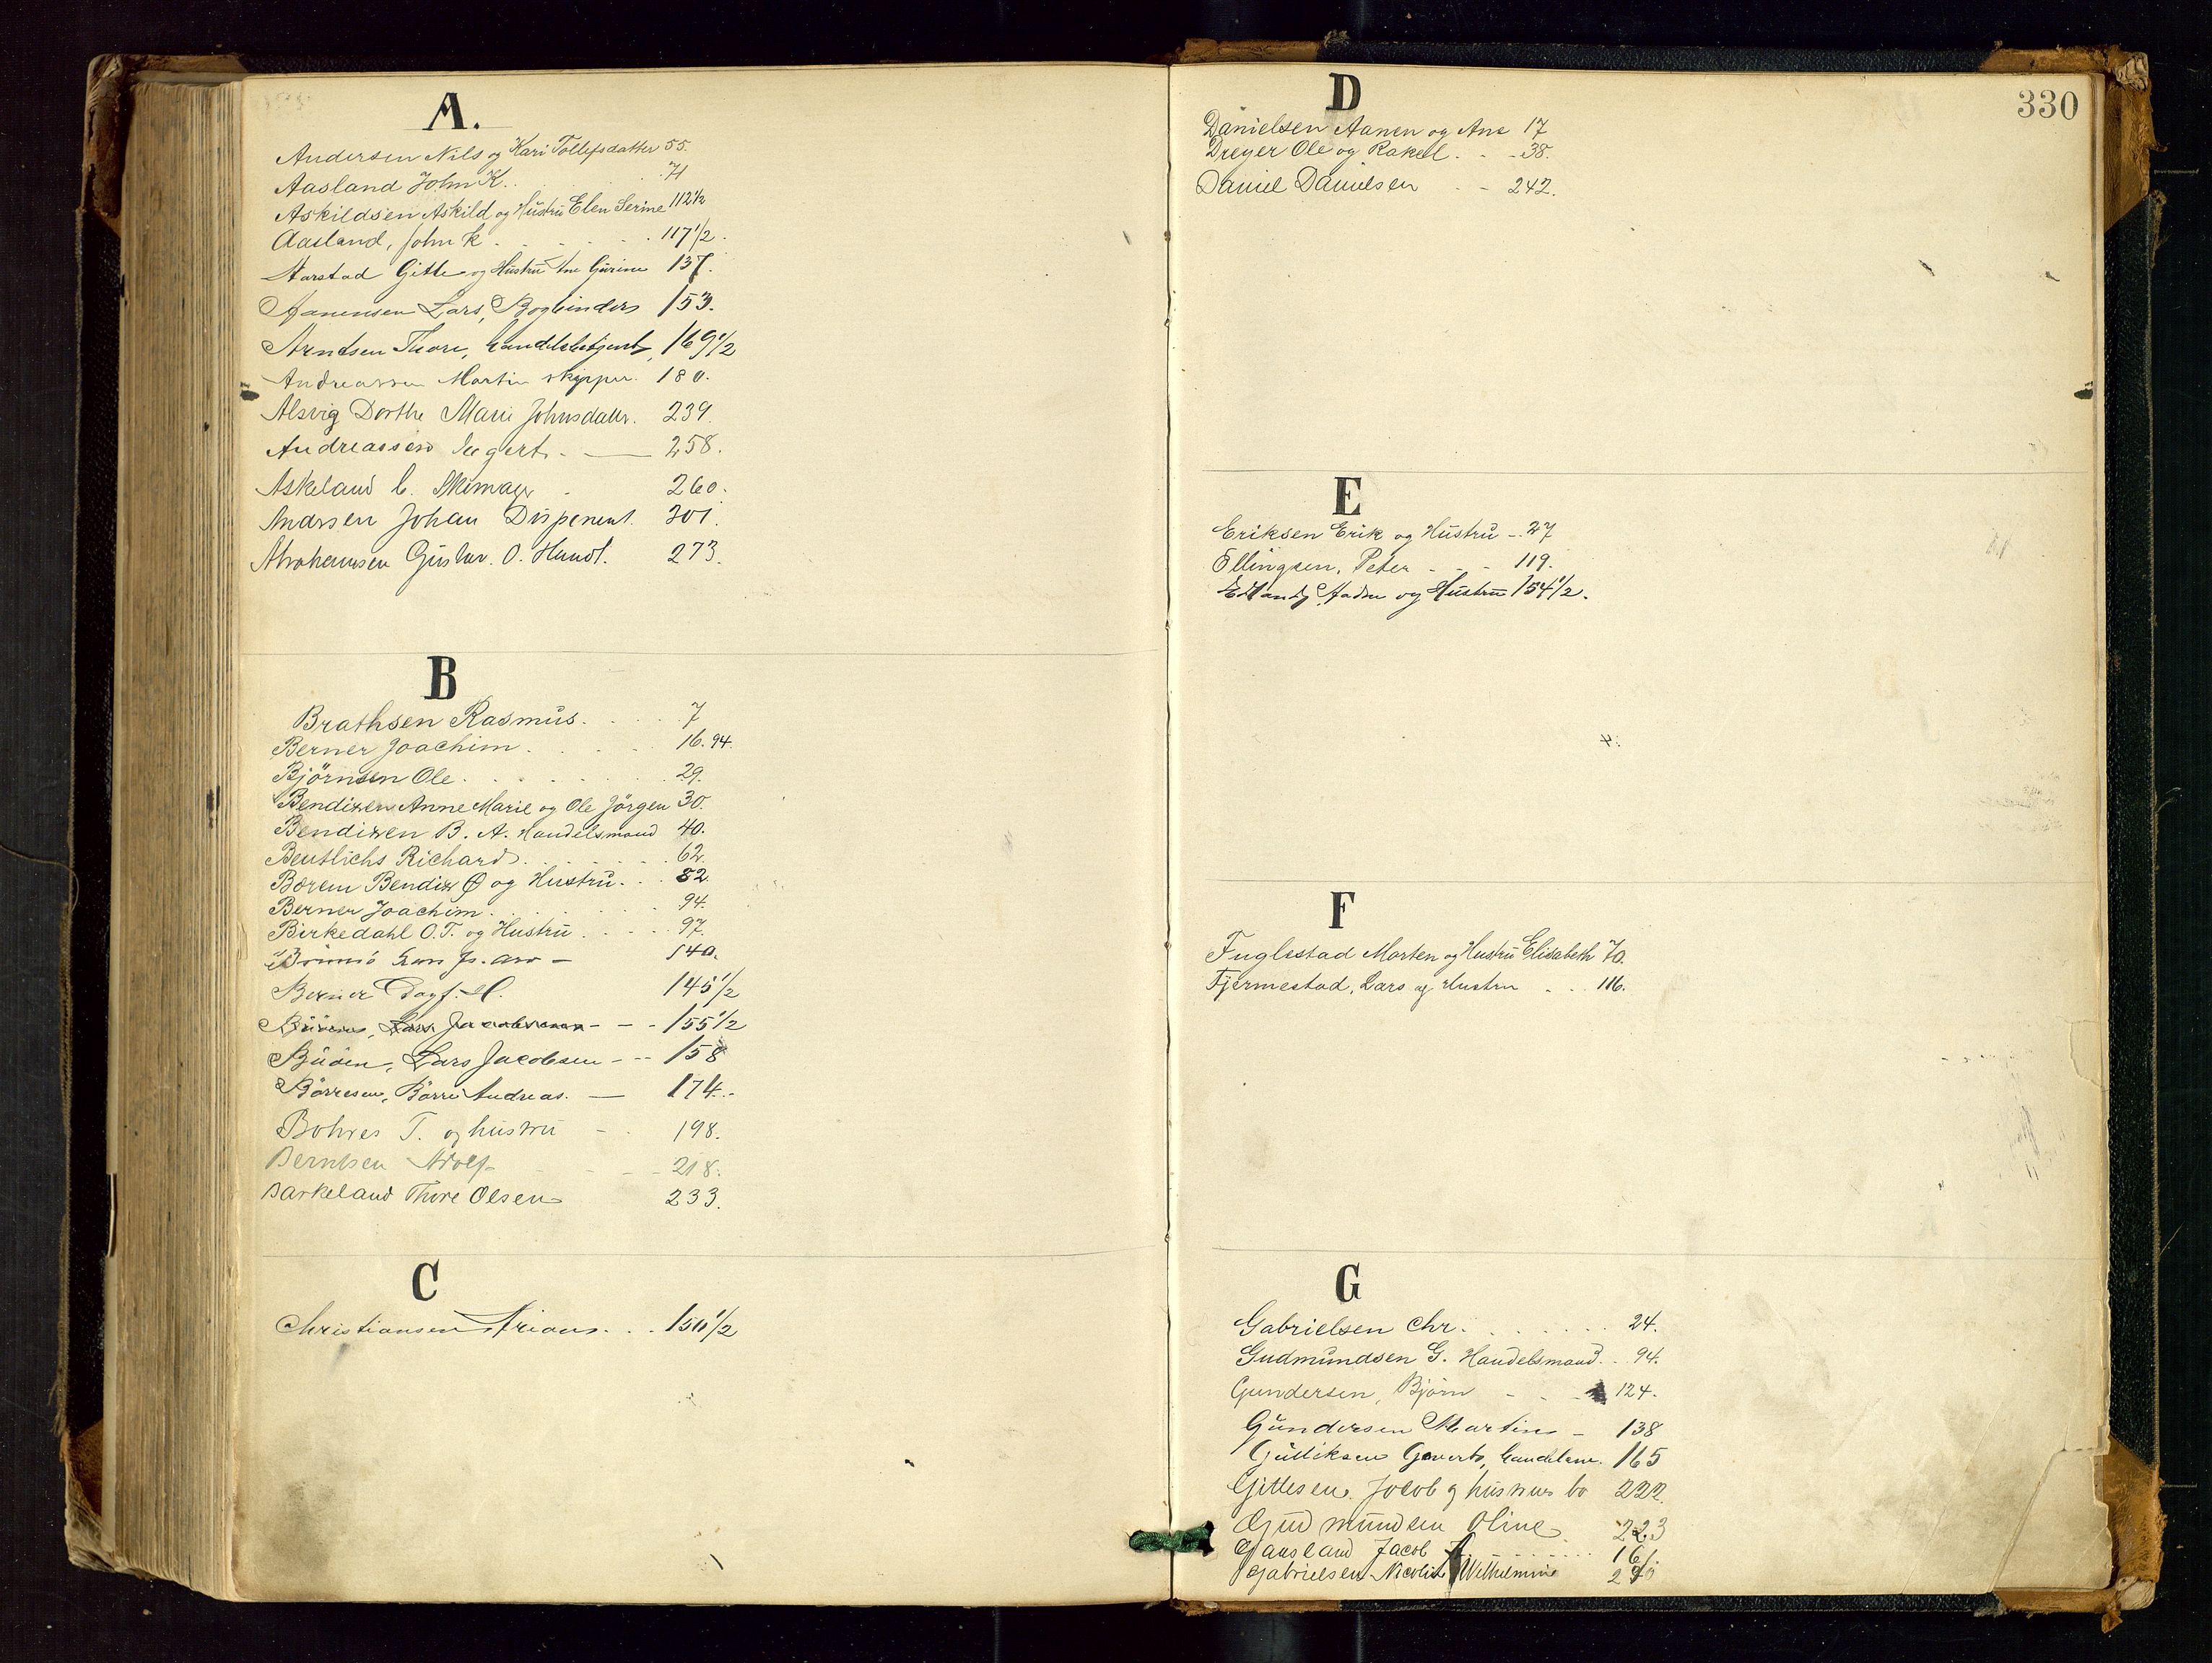 A.
Andersen Nils og Kari Tollefsdatter 55.
Aasland John K. . 71
Askildsen Askild og Hustru Elen Serine 112 1/2
Aasland, John K . - - - . 117 1/2.
Aarstad Gitle og Hustru Ane Gurine 137.
Aanensen Lars, Bogbinder 153.
Arntsen Thore, handelsbetjent, 169 1/2
Andreassen Martin skipper. 180.
Alsvig Dorthe Marie Johnsdattr. 239.
Andreassen - 258.
Askeland Skomager - 260.
Andrsen Johan Disponent. 301.
Abrahamsen Gustav. O. Handl. 273.
B
Brathsen Rasmus. . . . . 7
Berner Joachim . . . . 16. 94.
Björnsen Ole . . . . . . 29.
Bendixen Anne Marie og Ole Jörgen 30.
Bendixen B. A. Handelsmand 40.
Beutlichs Richard . . . . . . 62.
Børem Bendix Ø og Hustru . . . 82.
Berner Joachim . . . . . 94.
Birkedahl O. T. og Hustru . . . . 97.
140.
Berner Dagf. H. 145 1/2
Lars Jacobsen - - - 155 1/2
Buöen, Lars Jacobsen - -- 158
Börresen, Börre Andreas. — 174.-
Bohres T. og hustru - . 198.
Berntsen Adolf - - - 218.
Barkeland Thore Olsen 233.
C
Christiansen Arians. . . 150 1/2
330
D
Danielsen Aanen og Ane 17
Dreyer Ole og Rakel. . . 38.
Daniel Danielsen - - 242.
E
Eriksen Erik og Hustru - . 27
Ellingsen, Peter - - - 119.
og Hustru 154 1/2.
F
Fuglestad Morten og Hustru Elisabeth 70.
Fjermestad, Lars og Hustru . . . 116.
G
Gabrielsen Chr. . . . . . . 24.
Gudmundsen G. Handelsmand. . . 94.
Gundersen, Björn - - - 124.
Gundersen Martin - 138
Gulliksen Gevert, handelsm. 165
Gittesen Jacob og hustrus bo 222.
Gudmundsen Oline 223
Gausland Jacob . . . . . . . . . 161.
Gabrielsen Nicoline Wilhelmine